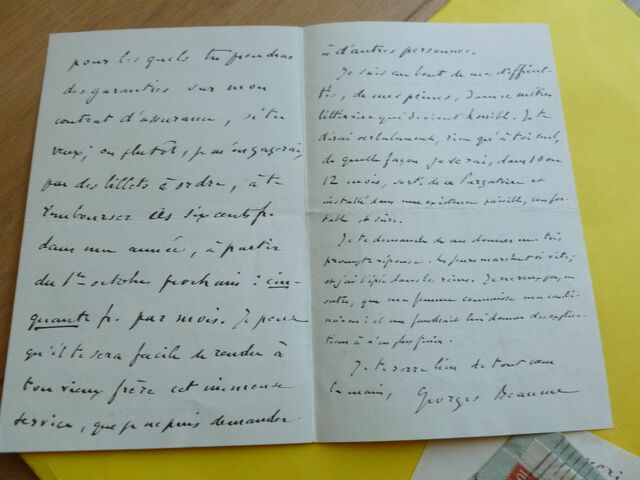 pour lesquels tu prendras
des garanties sur mon
contrat d'assurance, si tu
veux; ou plutôt, je m'engagerai,
par des billets à ordre, à te
rembourser ces six cents fr.
dans une année, à partir
du 1er octobre prochain : cin-
quante fr. par mois. Je pense
qu'il te sera facile de rendre à
ton vieux frère cet immense
service, que je ne puis demander
à d'autres personnes.
Je suis au bout de mes difficul-
tés, de mes peines, dans ce métier
littéraire qui devient horrible. Je te
dirai verbalement, rien qu'à toi seul,
de quelle façon je serai, dans 10 ou
12 mois, sorti de ce et
installé dans une existence paisible, confor-
table et sûre.
Je te demande de me donner une très
prompte réponse. Les jours marchent si vite;
et j'ai l'épée dans les reins. Je ne veux pas, en
outre, que ma femme connaisse ma
: il me faudrait lui donner des explica-
tions à n'en plus finir.
Je te serre bien de tout cœur
la main, Georges Beaume